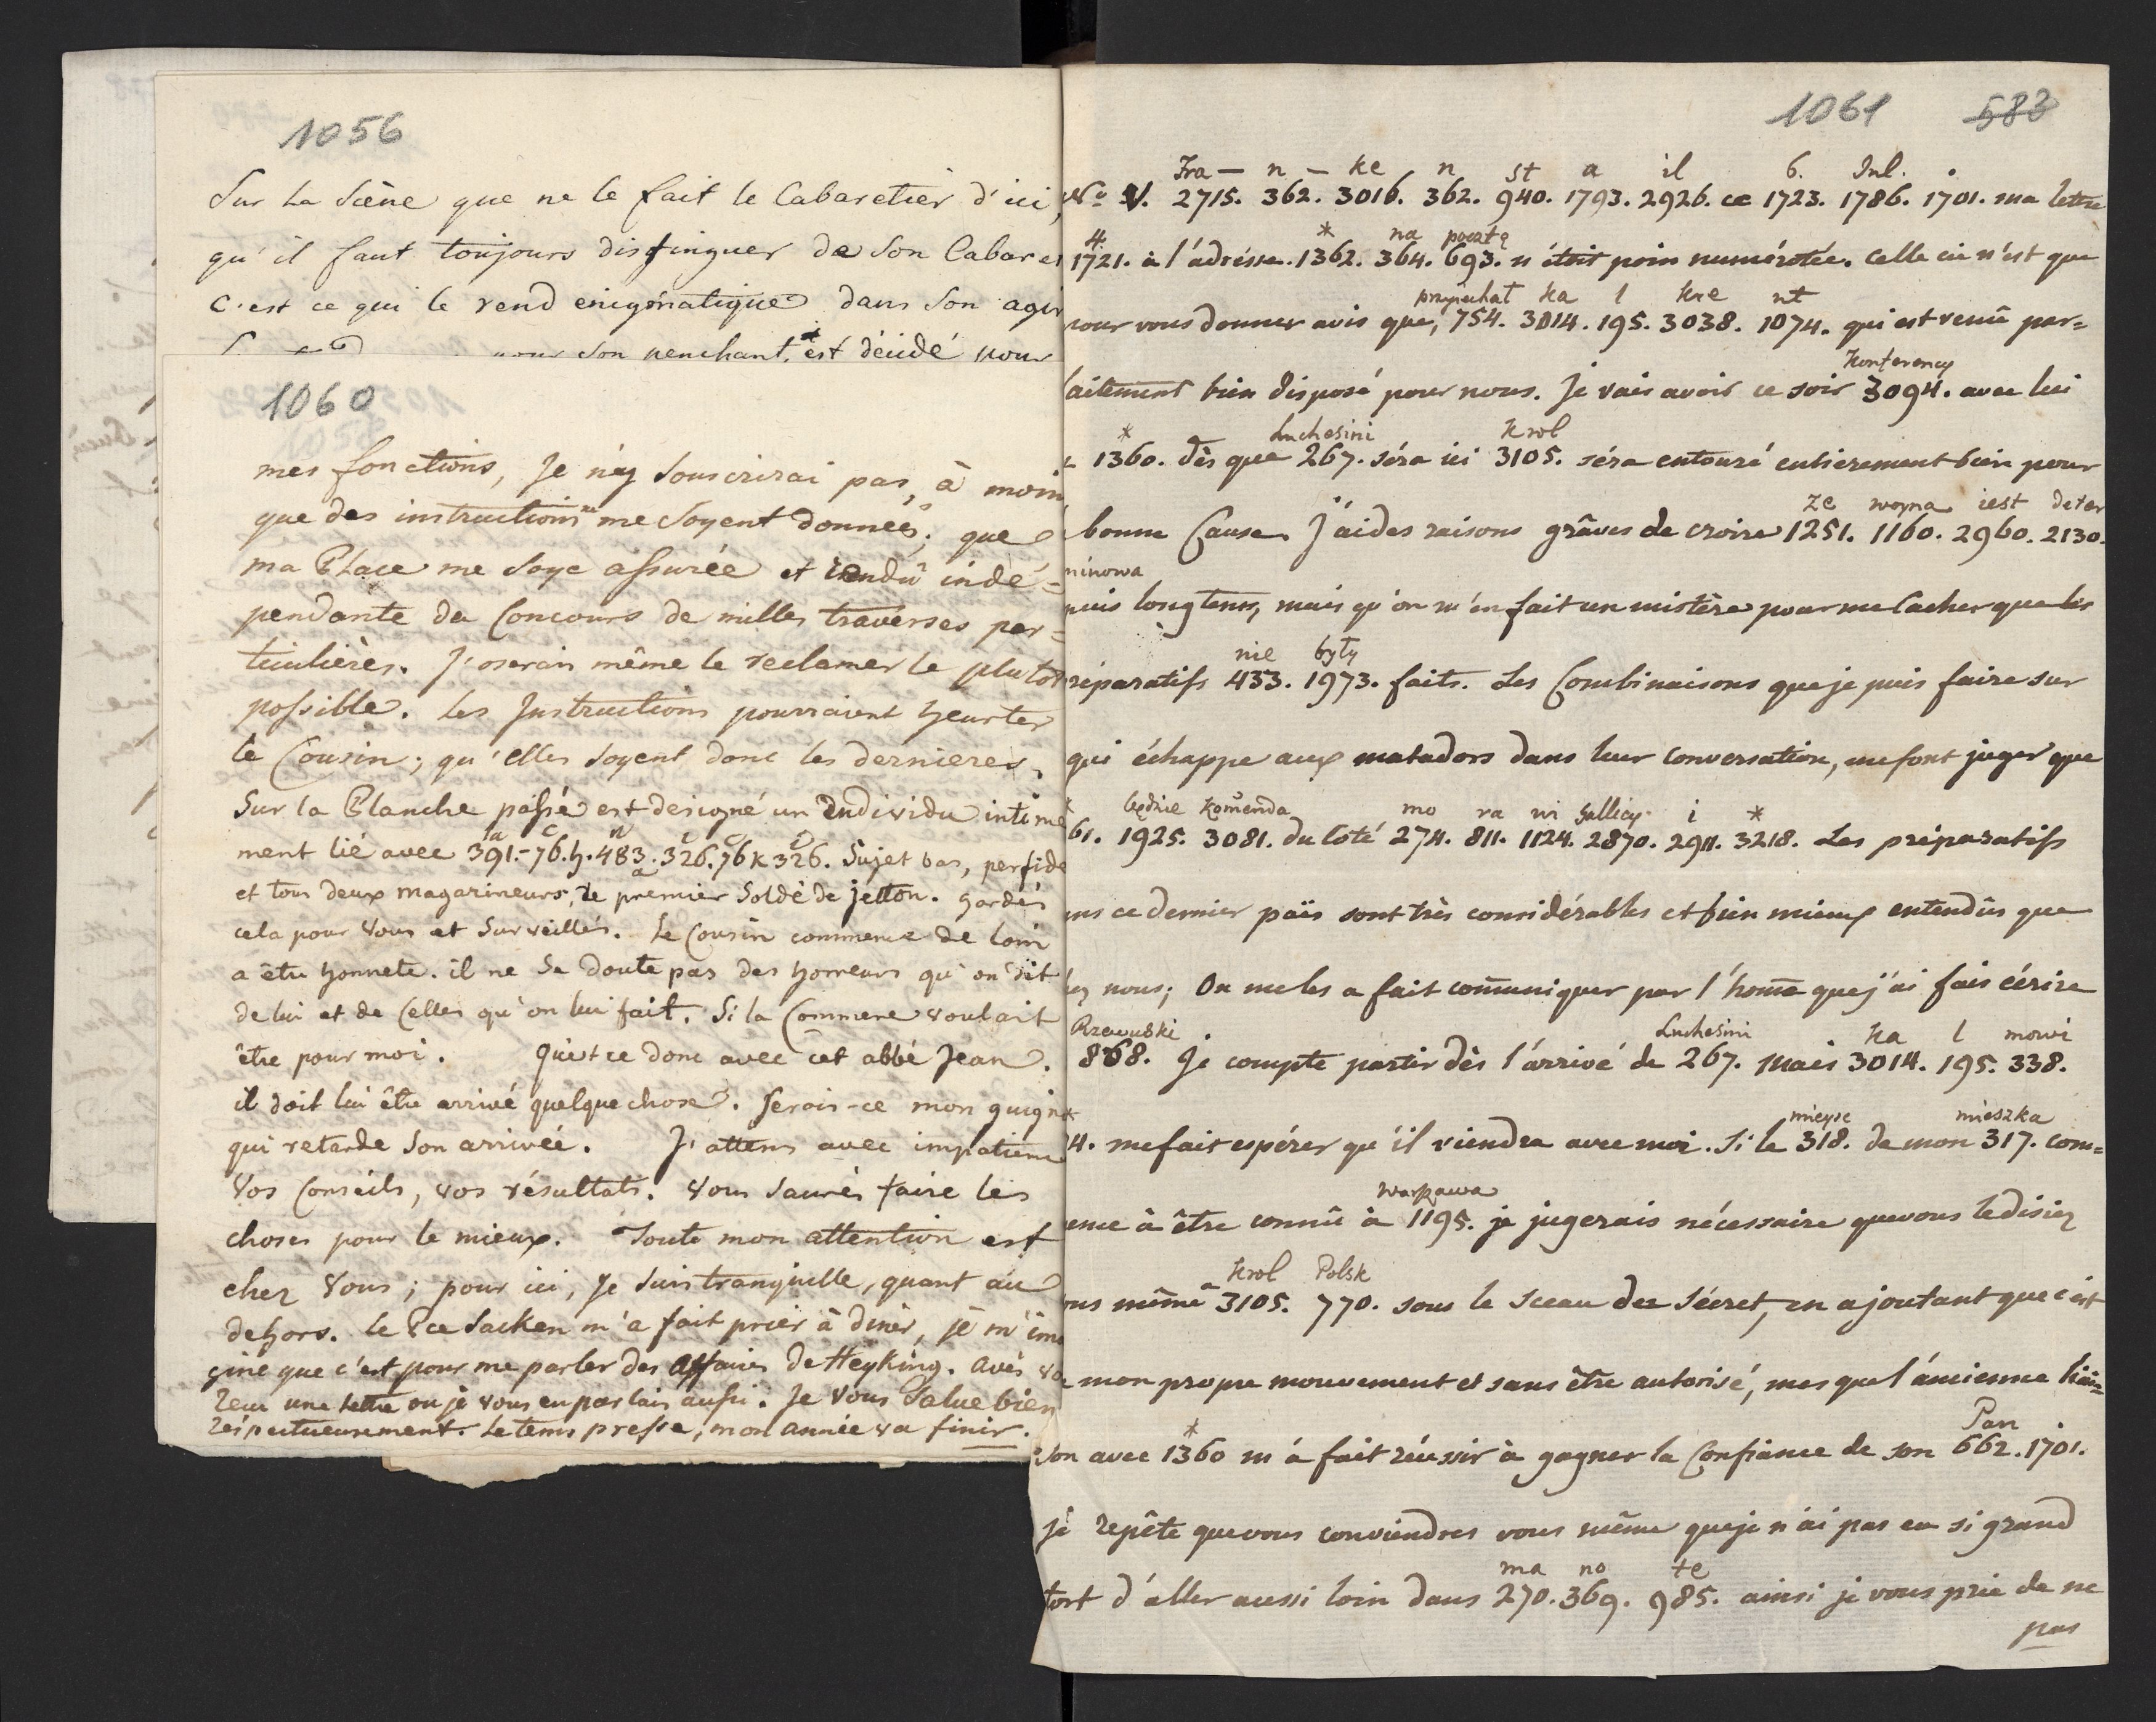 1056
Sur la Scène que ne le fait le Cabaretier d'ici,
qu'il faut toujours distinguer de son Cabaret
c'est ce qui le rend enigmatique dans son agir
pour son penchant, est décidé pour
1060
mes fonctions, Je n'ey souscrirai pas, à moin
que des instructions me soyent données; que
ma Place me soye assurée et rendû indé=
pendante du Concours de milles travèrses par=
ticulières. J'oserain même le reclamer le plutot
possible. Les Instructions pourraient heurter
le Cousin; qu'elles soyent donc les dernieres,
Sur la Planche passé est désigné un Individu intime
a c n i c i
ment lié avec 391.-76.h.483.326.76 k 326. Sujet bas, perfide
et tous deux magazineurs, le premier Soldé de jetton. gardés
cela pour vous et surveillés. Le Cousin commence de loin
a être honnete. il ne se doute pas des horreurs qu'on dit
de lui et de celles qu'on lui fait. Si la Commere voulait
être pour moi. Qu'est ce donc avec cet abbé Jean.
il doit lui être arrivé quelque chose. Serois-ce mon guign
qui retarde son arrivée. J'attens avec impatience
vos Conseils, vos résultats. vous saurés faire les
choses pour le mieux. Toute mon attention est
chez vous; pour ici, je suis tranquille, quant au
dehors. le Pce Sacken m'a fait prier à dinér, je m'ima
gine que c'est pour me parler des Affaires de Heyking. avés vo
reçu une lettre ou je vous en parlais aussi. Je vous salue bien
réspectueusement. Le tems presse, mon année va finir.
1061 583
Fra — n — ke n st a il 6. Jul.
No V. 2715. 362. 3016. 362. 940. 1793. 2926. ce 1723. 1786. 1701. ma lettre
4. * na pocztę
1721. à l'adrèsse. 1362. 364. 693. n'étoit poin numérotée. Celle ci n'est que
przyiechał ka l kre ut
pour vous donner avis que, 754. 3014. 195. 3038. 1074. qui est venû par=
Konferency
faitement bien disposé pour nous. Je vais avoir ce soir 3094. avec lui
* Luchesini Krol
1360. dès que 267. séra ici 3105. séra entouré entierement bien pour
ze woyna iest deter
bonne Cause. J'ai des raisons grâves de croire 1251. 1160. 2960. 2130.
minowa
puis longtems, mais qu'on m'en fait un mistère pour me cacher que les
nie były
réparatifs 433. 1973. faits. Les Combinaisons que je puis faire sur
qui échappe aux matadors dans leur conversation, me font juger que
* będzie Komenda mo ra wi Gallicy i *
61. 1925. 3081. du coté 274. 811. 1124. 2870. 2911. 3218. Les préparatifs
ans ce dernier païs sont très considérables et bien mieux entendûs que
ez nous; On me les a fait communiquer par l'home que j'ai fais écrire
Rzewuski Luchesini ka l mowi
868. Je compte partir dès l'arrivé de 267. mais 3014. 195. 338.
* mieysc mieszka
4. me fait espérer qu'il viendra avec moi. Si le 318. de mon 317. com=
Warszawa
ence à être connû à 1195. je jugerais nécessaire que vous le disiez
Krol Polsk
ous même à 3105. 770. sous le sceau du sécret, en ajoutant que c'est
mon propre mouvement et sans être autorisé, mes que l'ancienne liai=
* Pan
son avec 1360 m'a fait réussir à gagner la Confiance de son 662. 1701.
Je repète que vous conviendres vous même que je n'ai pas eu si grand
ma no te
tort d'aller aussi loin dans 270. 369. 985. ainsi je vous prie de ne
pas